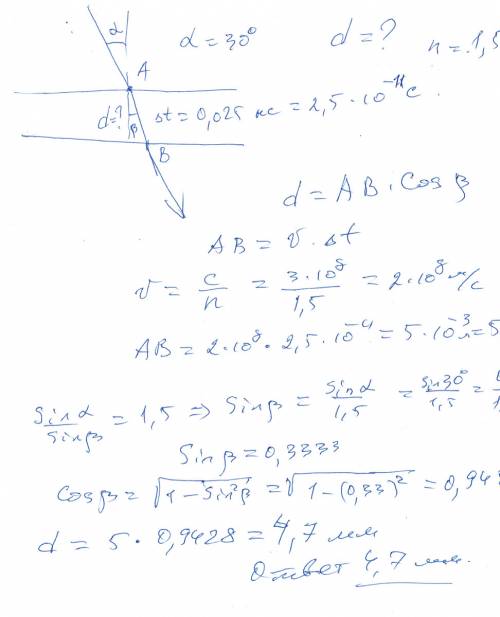 α
α = 30°
d = ?
n = 1,5
A
d = ?
β
Δt = 0,025 нс = 2,5 · 10⁻¹¹ с.
B
d = AB · Cos β
AB = v · Δt
v = c/n = 3·10⁸/1,5 = 2·10⁸ м/с
AB = 2·10⁸ · 2,5·10⁻¹¹ = 5·10⁻³ м = 5
Sinα/Sinβ = 1,5 ⇒ Sinβ = Sinα/1,5 = Sin30°/1,5 =
Sinβ = 0,3333
Cosβ = √(1 − Sin²β) = √(1 − (0,33)²) = 0,943
d = 5 · 0,9428 = 4,7 мм
Ответ 4,7 мм.